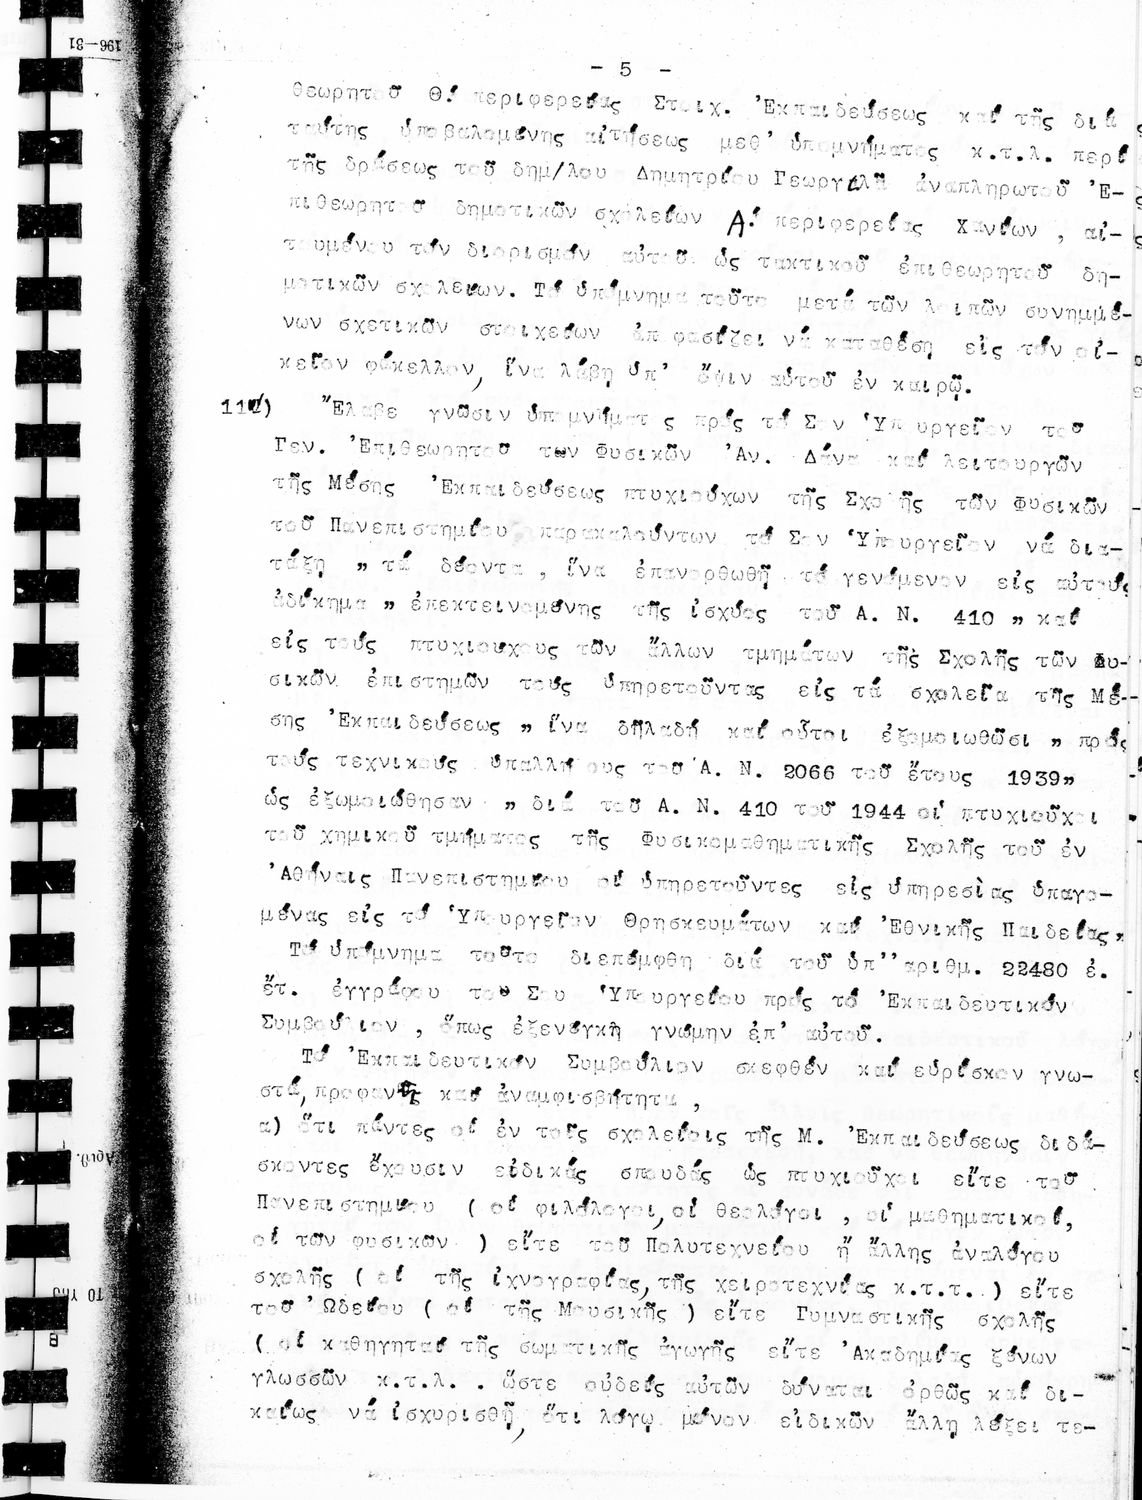 196-31
- 5 -
θεωρητοῦ Θ! περιφερείας Στοιχ. Ἐκπαιδεύσεως καί τῆς διά
ταύτης ὑποβαλομένης αἰτήσεως μεθ' ὑπομνήματος κ.τ.λ. περί
τῆς δράσεως τοῦ δημ/λου Δημητρίου Γεωργιλᾶ ἀναπληρωτοῦ Ἐ-
πιθεωρητοῦ δημοτικῶν σχολείων Α! περιφερείας Χανίων , αἰ-
τουμένου τόν διορισμόν αὐτοῦ ὡς τακτικοῦ ἐπιθεωρητοῦ δη-
μοτικῶν σχολείων. Τό ὑπόμνημα τοῦτο μετά τῶν λοιπῶν συνημμέ-
νων σχετικῶν στοιχείων ἀποφασίζει νά καταθέση εἰς τόν οἰ-
κεῖον φάκελλον, ἵνα λάβη ὑπ' ὄψιν αὐτοῦ ἐν καιρῷ.
11) Ἔλαβε γνῶσιν ὑπομνήματος πρός τό Σον Ὑπουργεῖον τοῦ
Γεν. Ἐπιθεωρητοῦ τῶν Φυσικῶν Ἀν. Δάνα καί λειτουργῶν
τῆς Μέσης Ἐκπαιδεύσεως πτυχιούχων τῆς Σχολῆς τῶν Φυσικῶν
τοῦ Πανεπιστημίου παρακαλούντων τό Σον Ὑπουργεῖον νά δια-
τάξη " τά δέοντα , ἵνα ἐπανορθωθῇ τό γενόμενον εἰς αὐτούς
ἀδίκημα " ἐπεκτεινομένης τῆς ἰσχύος τοῦ Α. Ν. 410 " καί
εἰς τούς πτυχιούχους τῶν ἄλλων τμημάτων τῆς Σχολῆς τῶν Φυ-
σικῶν ἐπιστημῶν τούς ὑπηρετοῦντας εἰς τά σχολεῖα τῆς Μέ-
σης Ἐκπαιδεύσεως " ἵνα δηλαδή καί οὗτοι ἐξομοιωθῶσι " πρός
τούς τεχνικούς ὑπαλλήλους τοῦ Α. Ν. 2066 τοῦ ἔτους 1939"
ὡς ἐξωμοιώθησαν " διά τοῦ Α. Ν. 410 τοῦ 1944 οἱ πτυχιοῦχοι
τοῦ χημικοῦ τμήματος τῆς Φυσικομαθηματικῆς Σχολῆς τοῦ ἐν
Ἀθήναις Πανεπιστημίου οἱ ὑπηρετοῦντες εἰς ὑπηρεσίας ὑπαγο-
μένας εἰς τό Ὑπουργεῖον Θρησκευμάτων καί Ἐθνικῆς Παιδείας"
Τό ὑπόμνημα τοῦτο διεπέμφθη διά τοῦ ὑπ''αριθμ. 22480 ἐ.
ἔτ. ἐγγράφου τοῦ Σου Ὑπουργείου πρός τό Ἐκπαιδευτικόν
Συμβούλιον , ὅπως ἐξενέγκη γνώμην ἐπ' αὐτοῦ.
Τό Ἐκπαιδευτικόν Συμβούλιον σκεφθέν καί εὑρίσκον γνω-
στά, προφανῆ καί ἀναμφισβήτητα ,
α) ὅτι πάντες οἱ ἐν τοῖς σχολείοις τῆς Μ. Ἐκπαιδεύσεως διδά-
σκοντες ἔχουσιν εἰδικάς σπουδάς ὡς πτυχιοῦχοι εἴτε τοῦ
Πανεπιστημίου ( οἱ φιλόλογοι, οἱ θεολόγοι , οἱ μαθηματικοί,
οἱ τῶν φυσικῶν ) εἴτε τοῦ Πολυτεχνείου ἤ ἄλλης ἀναλόγου
σχολῆς ( οἱ τῆς ἰχνογραφίας, τῆς χειροτεχνίας κ.τ.τ. ) εἴτε
τοῦ Ὠδείου ( οἱ τῆς Μουσικῆς ) εἴτε Γυμναστικῆς σχολῆς
( οἱ καθηγηταί τῆς σωματικῆς ἀγωγῆς εἴτε Ἀκαδημίας ξένων
γλωσσῶν κ.τ.λ. . ὥστε οὐδείς αὐτῶν δύναται ὀρθῶς καί δι-
καίως νά ἰσχυρισθῇ, ὅτι λόγῳ μόνον εἰδικῶν ἄλλη λέξει τε-